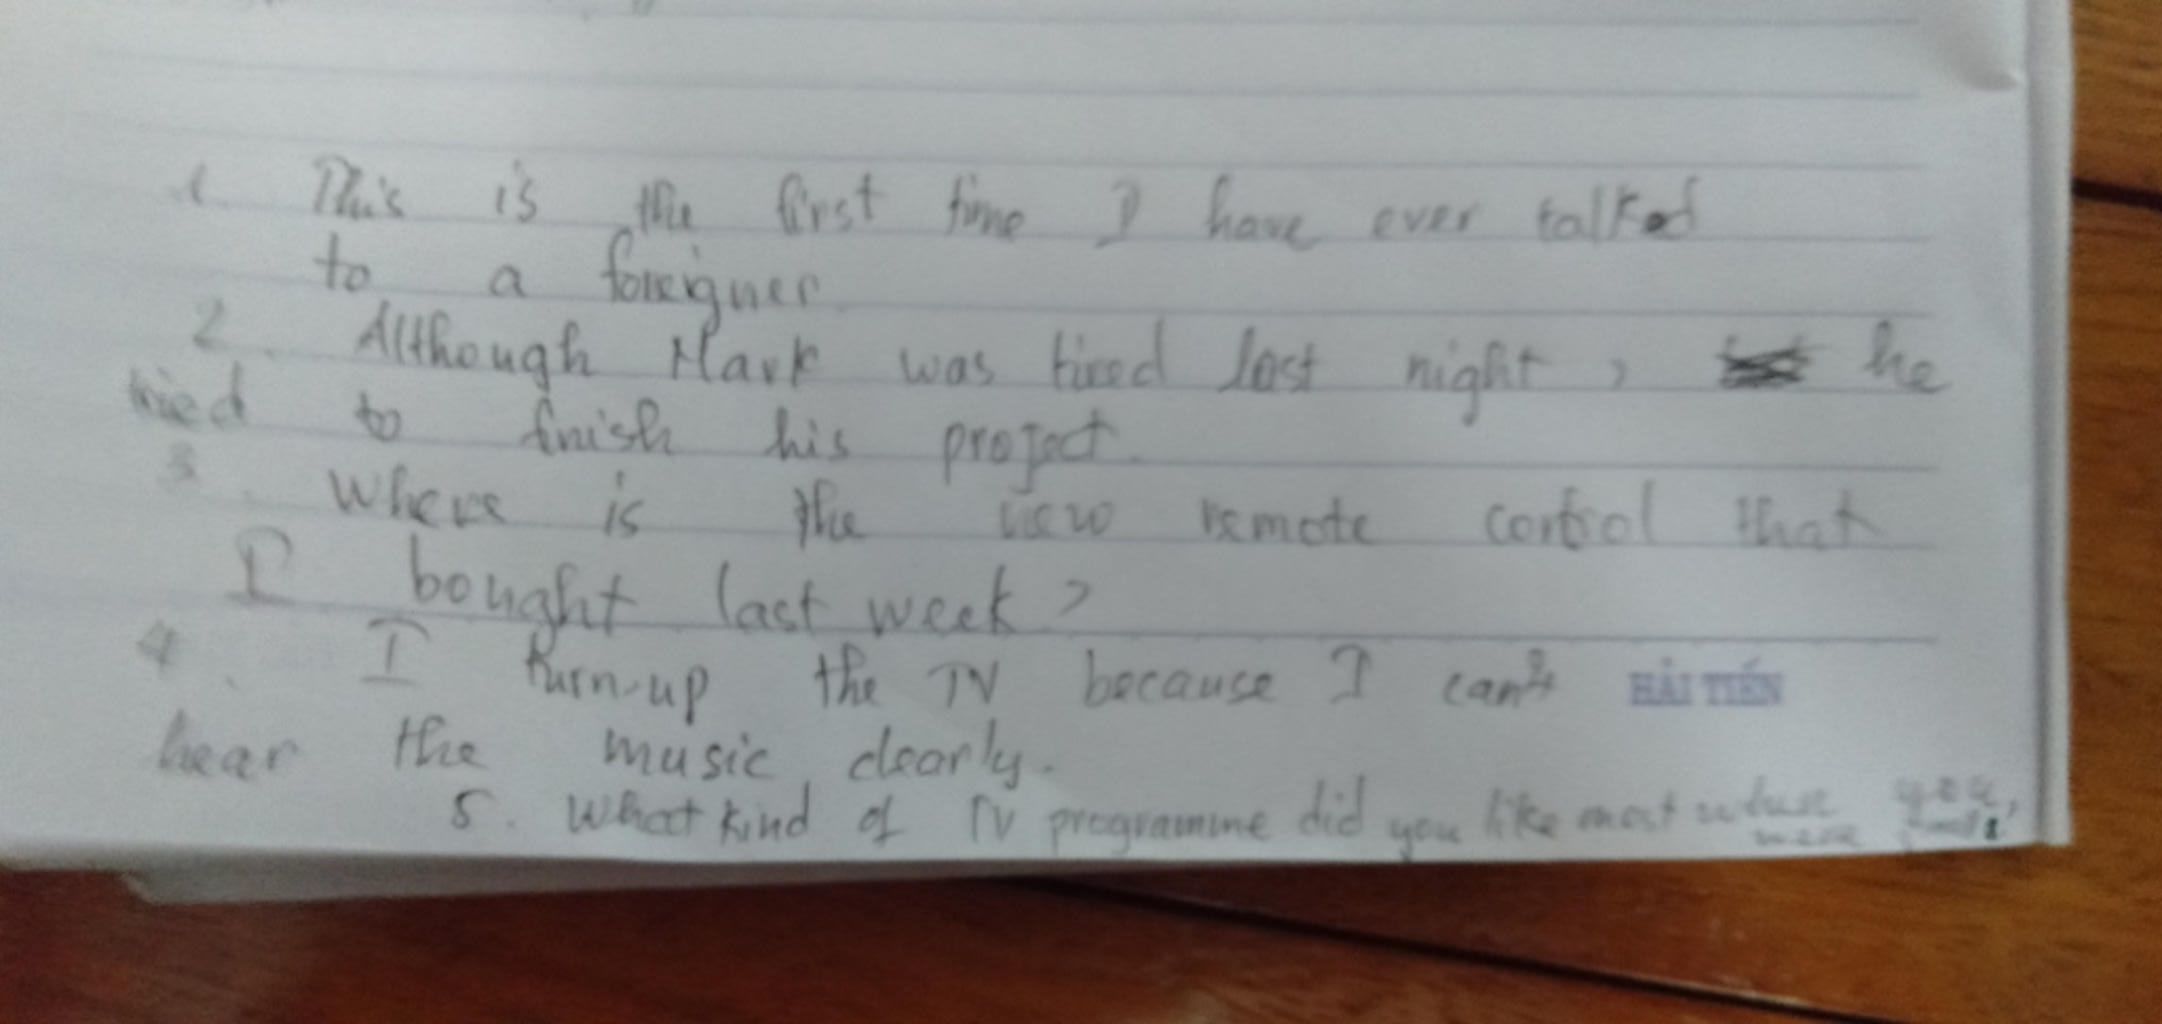 1. This is the first time I have ever talked
to a foreigner
2. Although Mark was tired last night, he
tried to finish his project.
3. Where is the new remote control that
I bought last week?
4. I turn up the TV because I can't
HẢI TIẾN
hear the music clearly.
5. What kind of TV programme did you like most when you
were